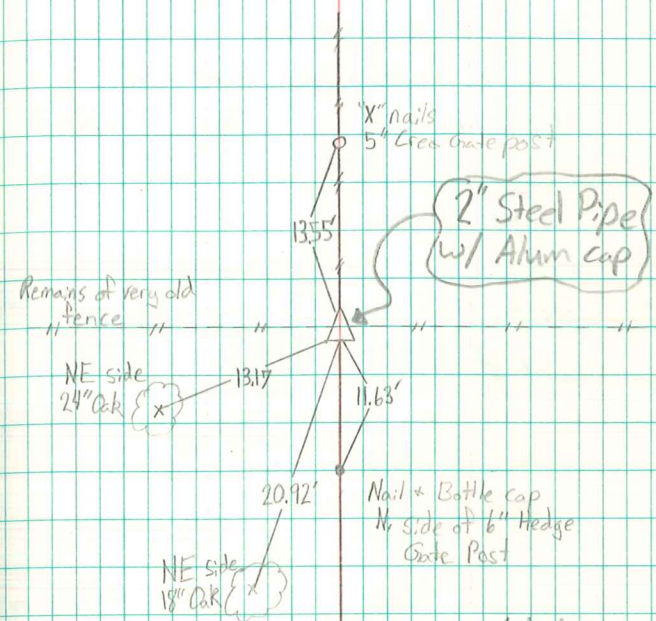 "X" nails
5" Creo Gate post
2" Steel Pipe
w/ Alum cap
13.55'
Remains of very old
fence
NE side
24" Oak
13.17
11.63'
20.92'
Nail & Bottle cap
N. side of 6" Hedge
Gate Post
NE side
18" Oak